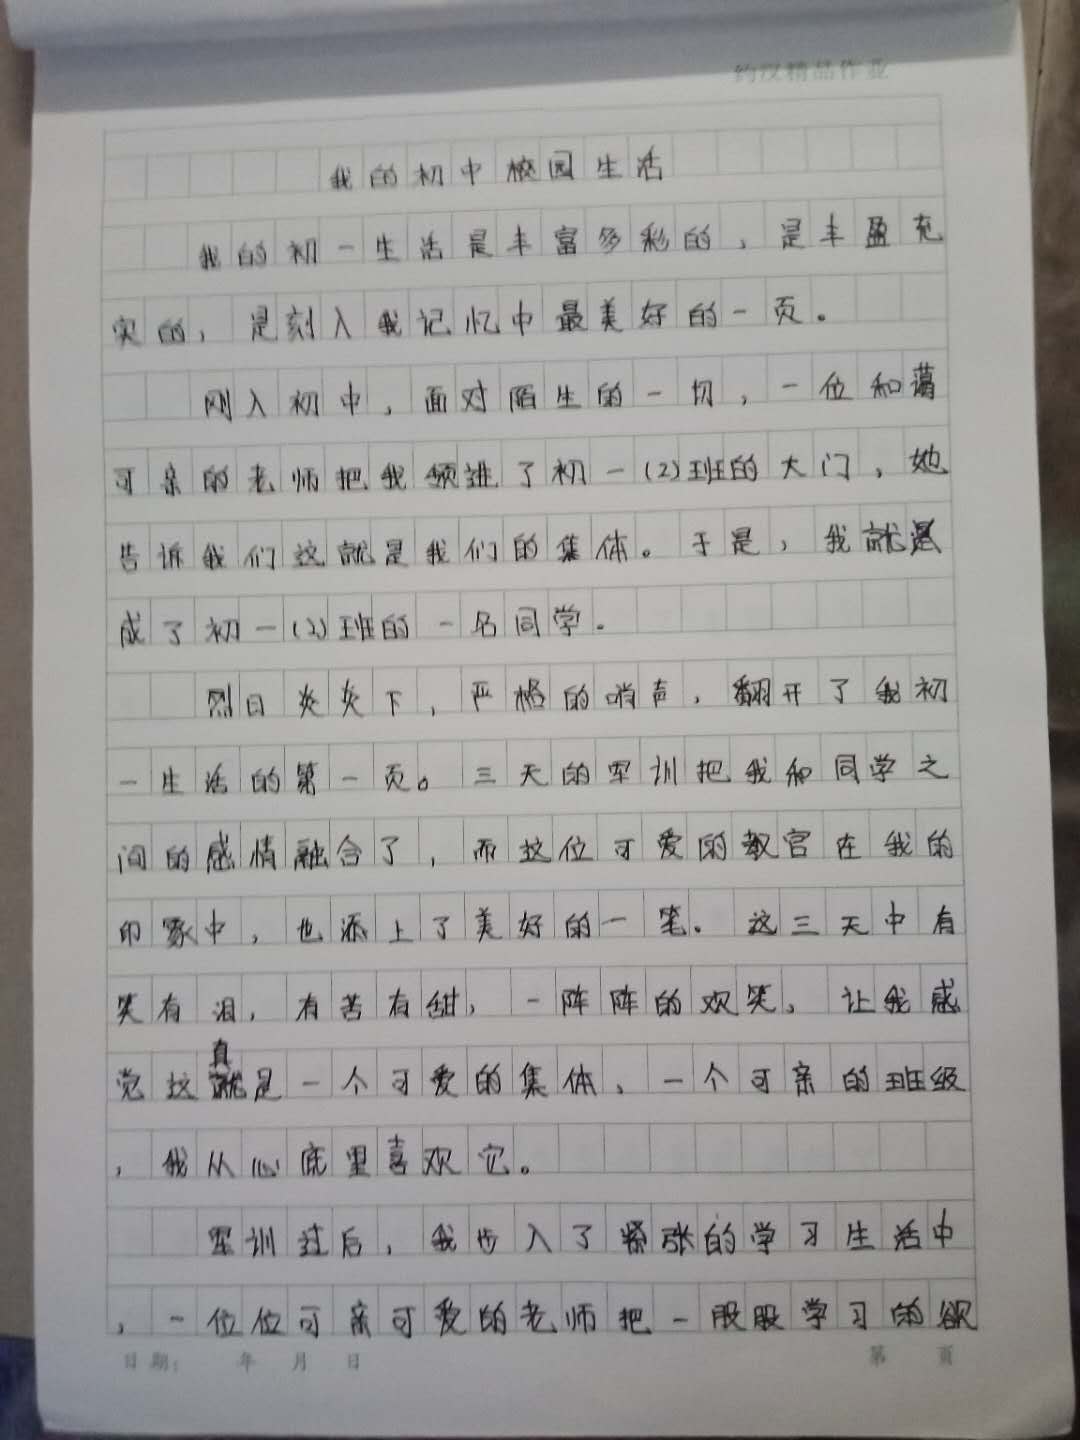 约汉精品作业
我的初中校园生活
我的初一生活是丰富多彩的,是丰盈充
实的,是刻入我记忆中最美好的一页。
刚入初中,面对陌生的一切,一位和蔼
可亲的老师把我领进了初一(2)班的大门,她
告诉我们这就是我们的集体。于是,我就
成了初一(2)班的一名同学.
烈日炎炎下,严格的哨声,翻开了我初
一生活的第一页。三天的军训把我和同学之
间的感情融合了,而这位可爱的教官在我的
印象中,也添上了美好的一笔.这三天中有
笑有泪,有苦有甜,一阵阵的欢笑,让我感
真
觉这就是一个可爱的集体、一个可亲的班级
,我从心底里喜欢它。
军训过后,我步入了紧张的学习生活中
,一位位可亲可爱的老师把一股股学习的欲
日期: 年 月 日 第 页